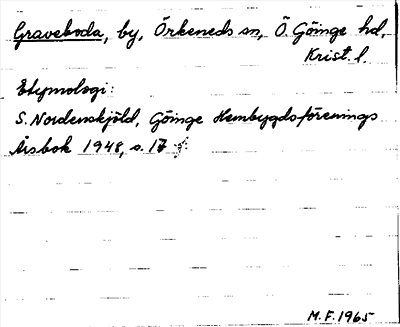 Graveboda, by, Örkeneds sn, Ö. Göinge hd,
Krist. l.
Etymologi:
S. Nordenskjöld, Göinge Hembygdsförenings
Årsbok 1948, s. 17
M.F. 1965